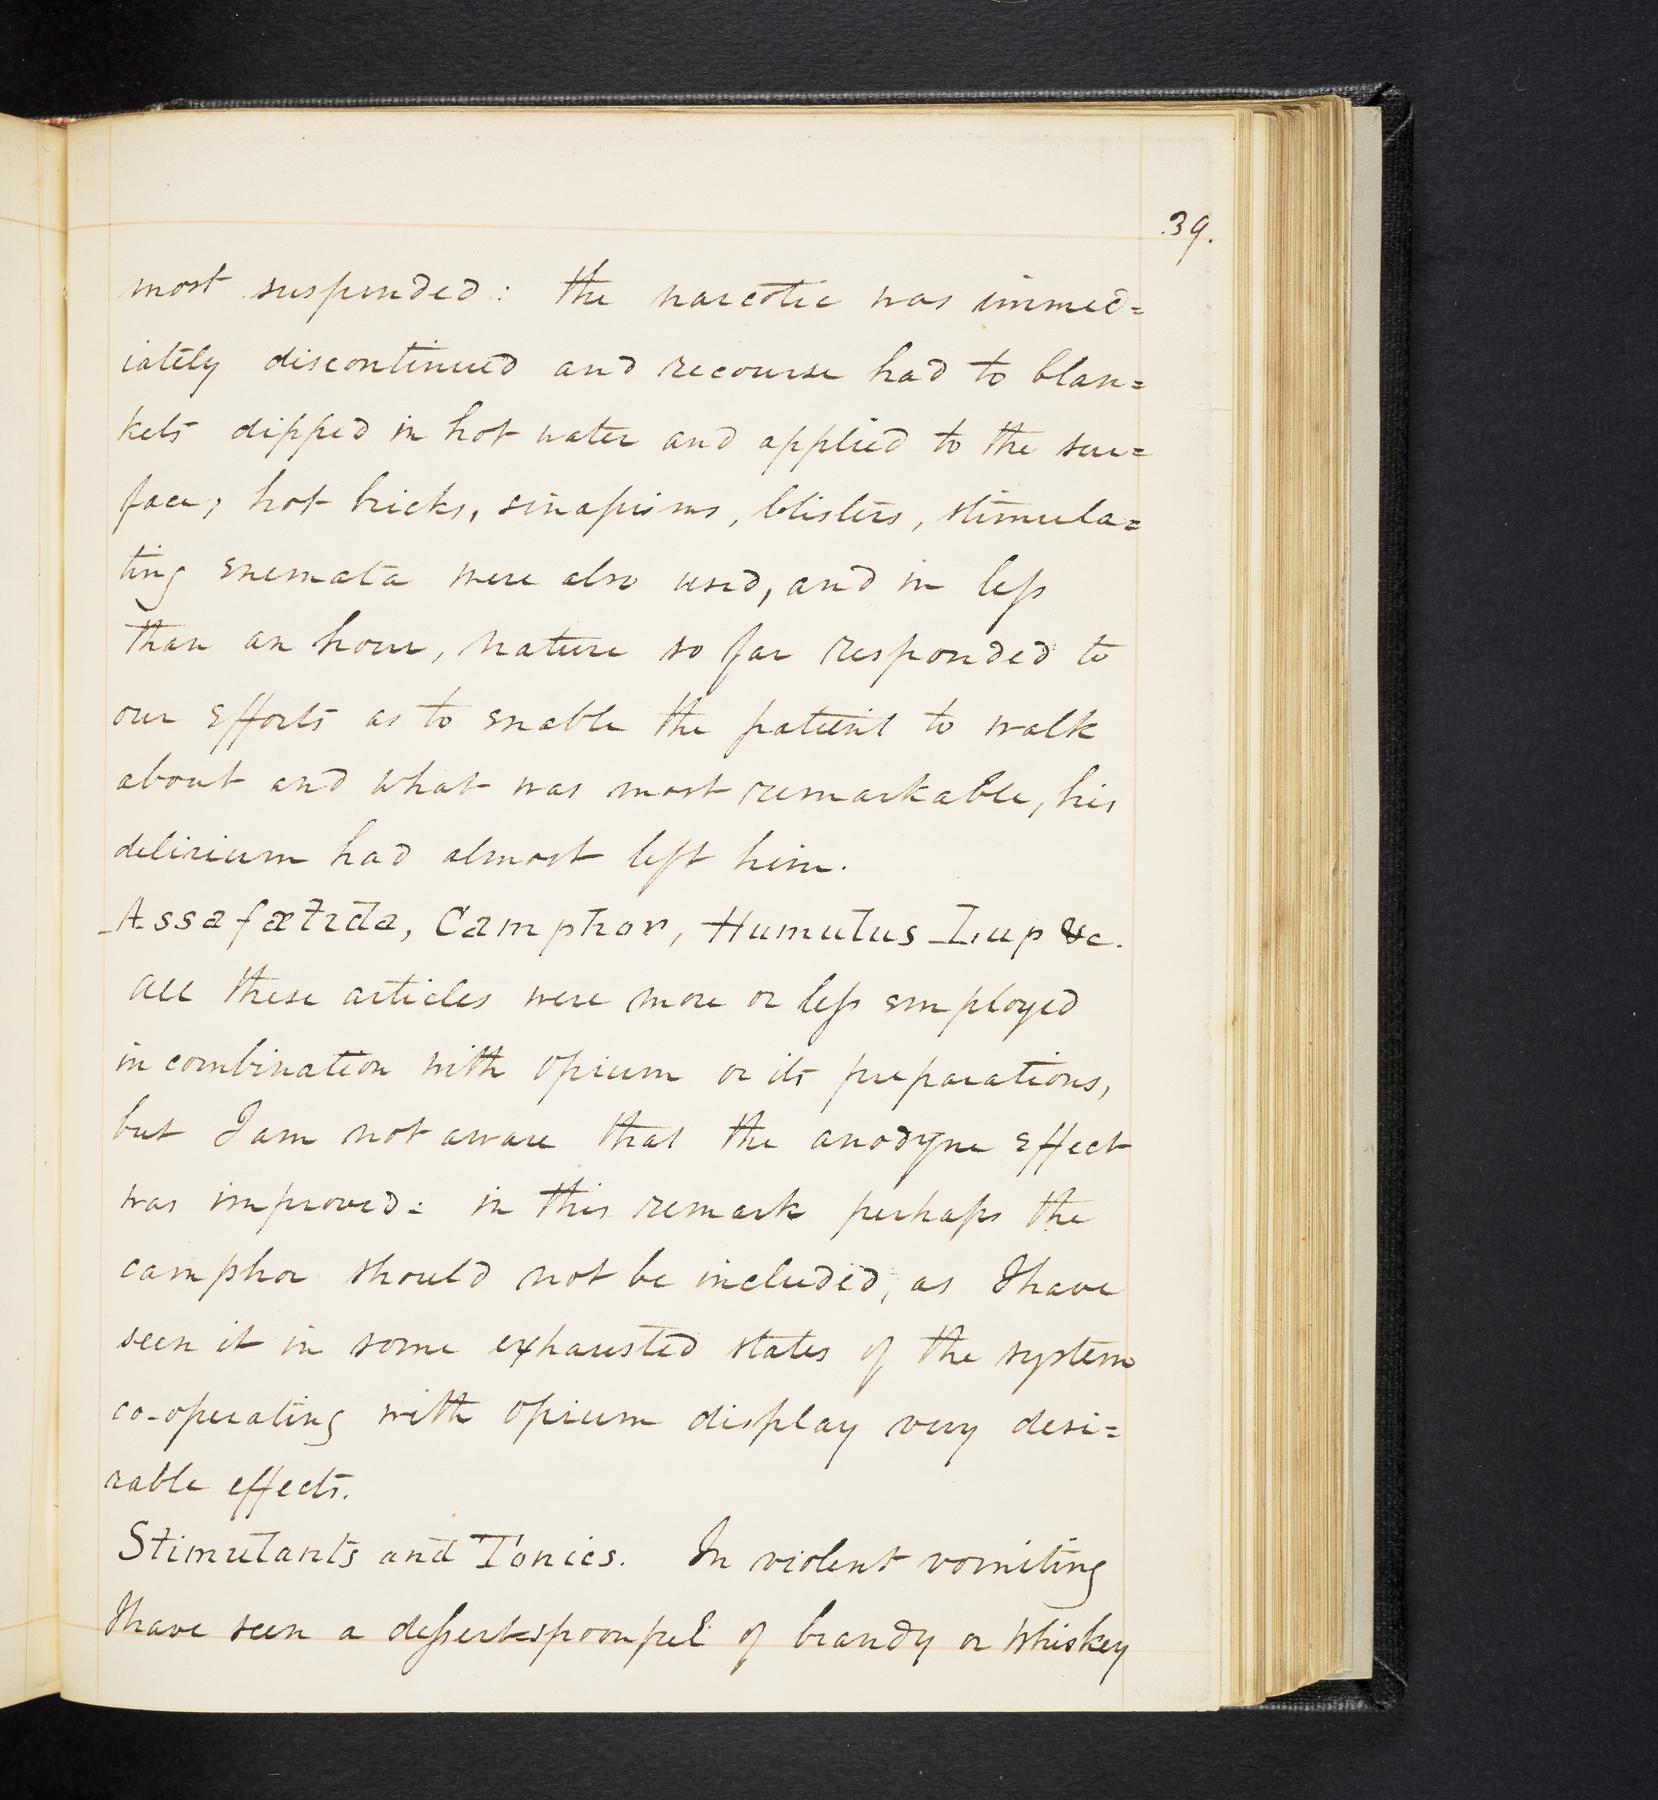 39.
most suspended: the narcotic was immed=
iately discontinued and recourse had to blan=
kets dipped in hot water and applied to the sur=
face; hot bricks, sinapisms, blisters, stimula=
ting enemata were also used, and in less
than an hour, nature so far responded to
our efforts as to enable the patient to walk
about and what was most remarkable, his
delirium had almost left him.
Assafœtida, Camphor, Humulus Lup &c.
All these articles were more or less employed
in combination with opium or its preparations,
but I am not aware that the anodyne effect
was improved: in this remark perhaps the
camphor should not be included, as I have
seen it in some exhausted states of the system
co-operating with opium display very desi=
rable effects.
Stimulants and Tonics. In violent vomiting
I have seen a dessert-spoonful of brandy or whiskey